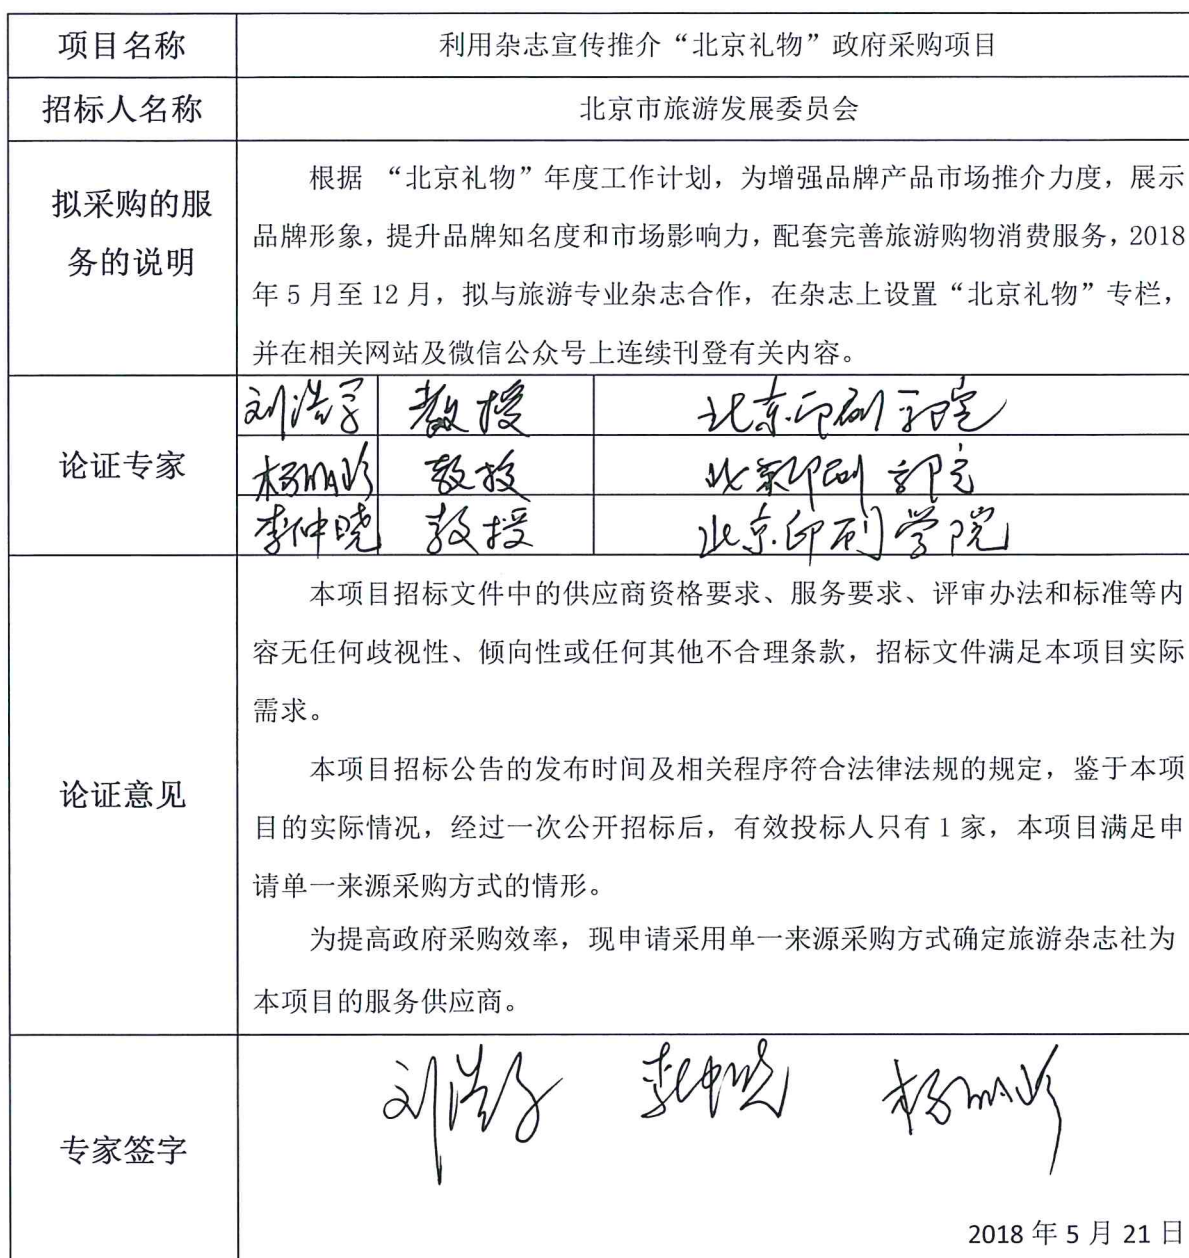 项目名称 利用杂志宣传推介“北京礼物”政府采购项目
招标人名称 北京市旅游发展委员会
拟采购的服务的说明
根据 “北京礼物”年度工作计划，为增强品牌产品市场推介力度，展示
品牌形象，提升品牌知名度和市场影响力，配套完善旅游购物消费服务，2018
年 5 月至 12 月，拟与旅游专业杂志合作，在杂志上设置“北京礼物”专栏，
并在相关网站及微信公众号上连续刊登有关内容。
论证专家
刘浩学 教授 北京印刷学院
教授 北京印刷学院
李仲晓 教授 北京印刷学院
论证意见
本项目招标文件中的供应商资格要求、服务要求、评审办法和标准等内
容无任何歧视性、倾向性或任何其他不合理条款，招标文件满足本项目实际
需求。
本项目招标公告的发布时间及相关程序符合法律法规的规定，鉴于本项
目的实际情况，经过一次公开招标后，有效投标人只有 1 家，本项目满足申
请单一来源采购方式的情形。
为提高政府采购效率，现申请采用单一来源采购方式确定旅游杂志社为
本项目的服务供应商。
专家签字
刘浩学 李仲晓
2018 年 5 月 21 日